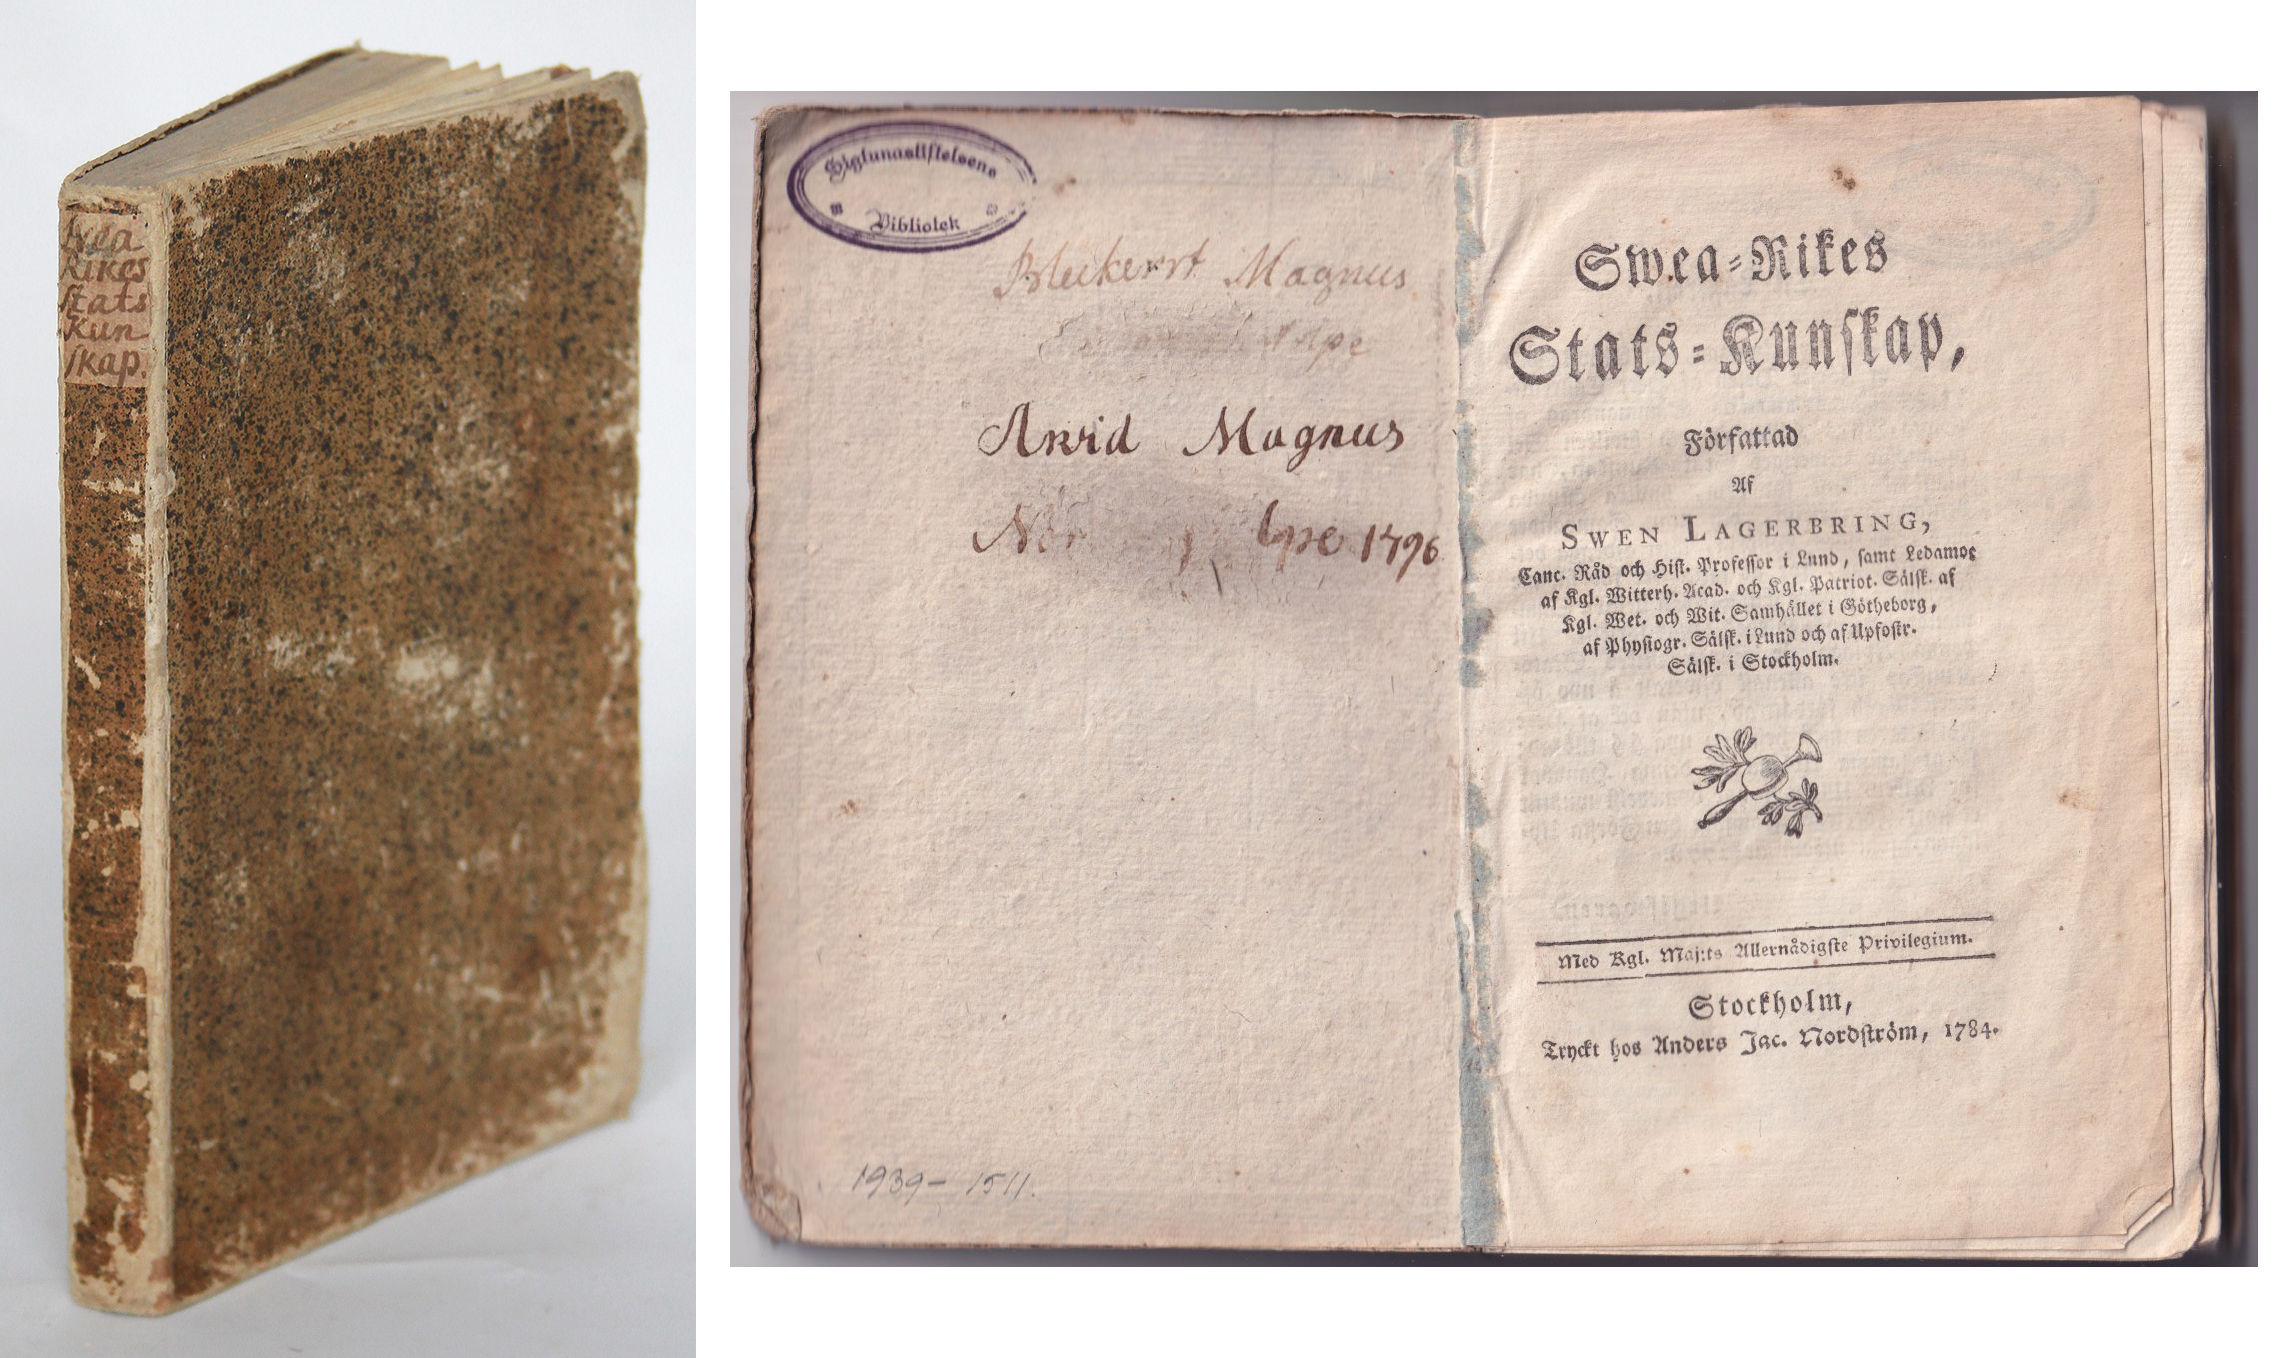 Swea
Rikes
Stats
Kun
skap.
Sigtunastiftelsens
Bibliotek
Magnus
Arvid Magnus
1796
1939 - 1511.
Swea-Rikes
Stats-Kunskap,
Författad
Af
SWEN LAGERBRING,
Canc. Råd och Hist. Professor i Lund, samt Ledamot
af Kgl. Witterh. Acad. och Kgl. Patriot. Sälsk. af
Kgl. Wet. och Wit. Samhället i Götheborg,
af Physiogr. Sälsk. i Lund och af Upfostr.
Sälsk. i Stockholm.
Med Kgl. Maj:ts Allernådigste Privilegium.
Stockholm,
Tryckt hos Anders Jac. Nordström, 1784.